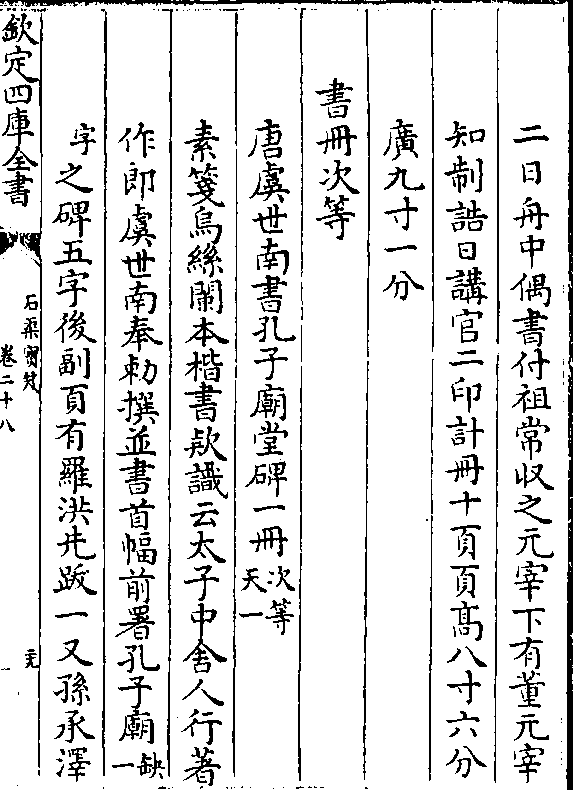 二日舟中偶書付祖常収之元宰下有董元宰
知制誥日講官二印計冊十頁頁髙八寸六分
廣九寸一分
書冊次等
唐虞世南書孔子廟堂碑一冊次等天一
素箋烏絲闌本楷書欵識云太子中舎人行著
作郎虞世南奉勅撰並書首幅前署孔子廟缺一
字之碑五字後副頁有羅洪先跋一又孫承澤
欽定四庫全書
石渠寳笈
卷二十八